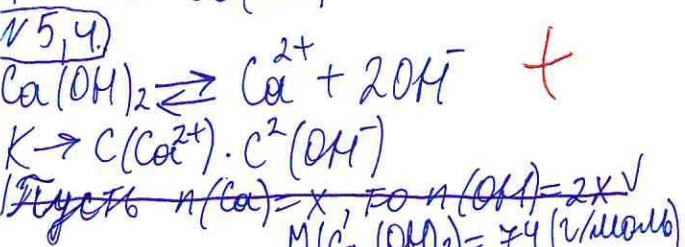 №5,4.
Ca(OH)₂ ⇄ Ca²⁺ + 2OH⁻ +
K → C(Ca²⁺) · C²(OH⁻)
Пусть n(Ca) = x, то n(OH) = 2x
M(Ca(OH)₂) = 74 (г/моль)